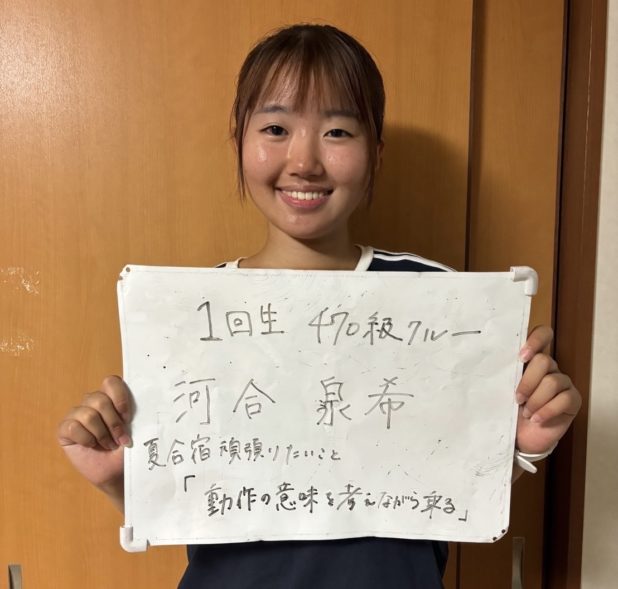 1回生 470級クルー
河合 泉希
夏合宿頑張りたいこと
「動作の意味を考えながら乗る」